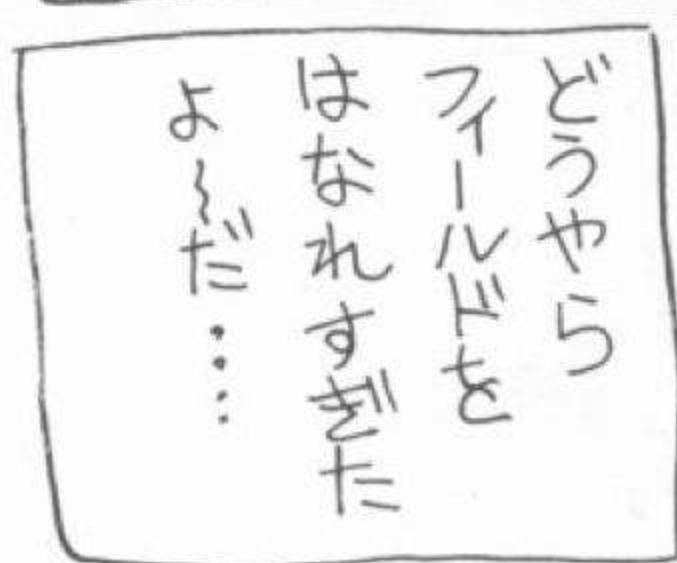 どうやら
フィールドを
はなれすぎた
よ〜だ・・・・